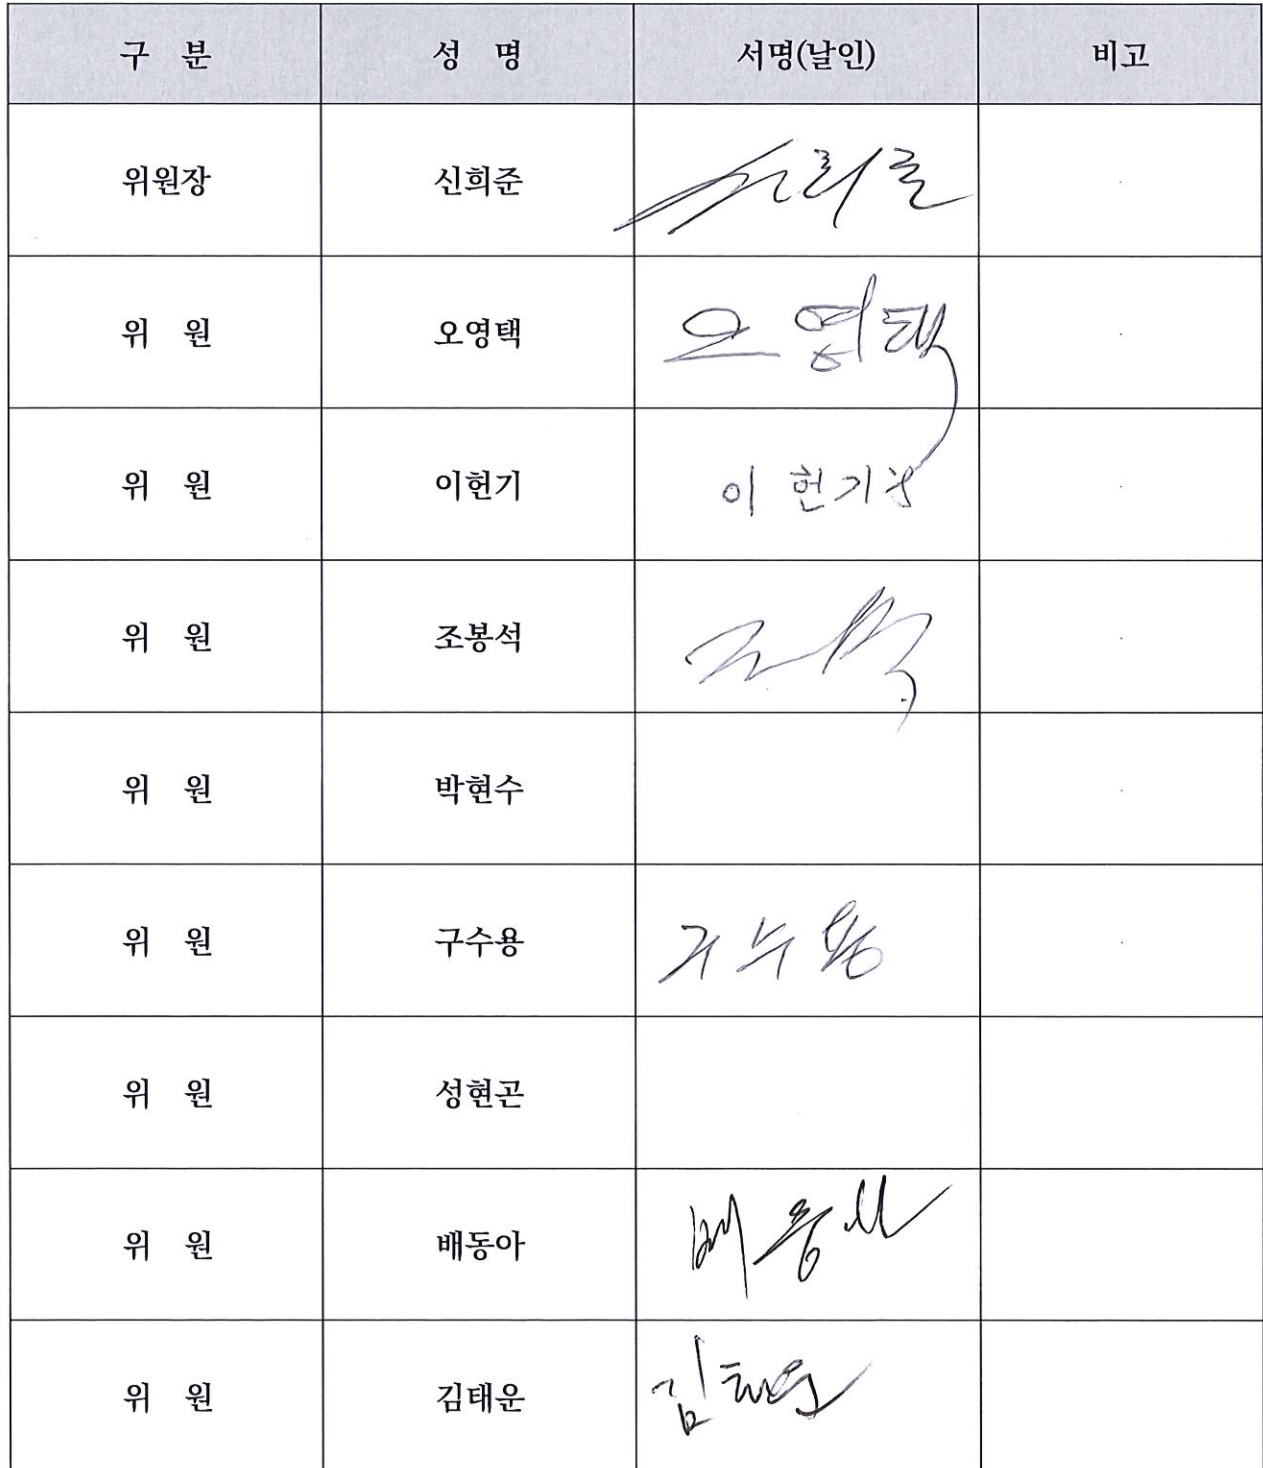 구 분 성 명 서명(날인) 비고
위원장 신희준 신희준
위 원 오영택 오영택
위 원 이헌기 이헌기
위 원 조봉석
위 원 박현수
위 원 구수용 구수용
위 원 성현곤
위 원 배동아 배동아
위 원 김태운 김태운